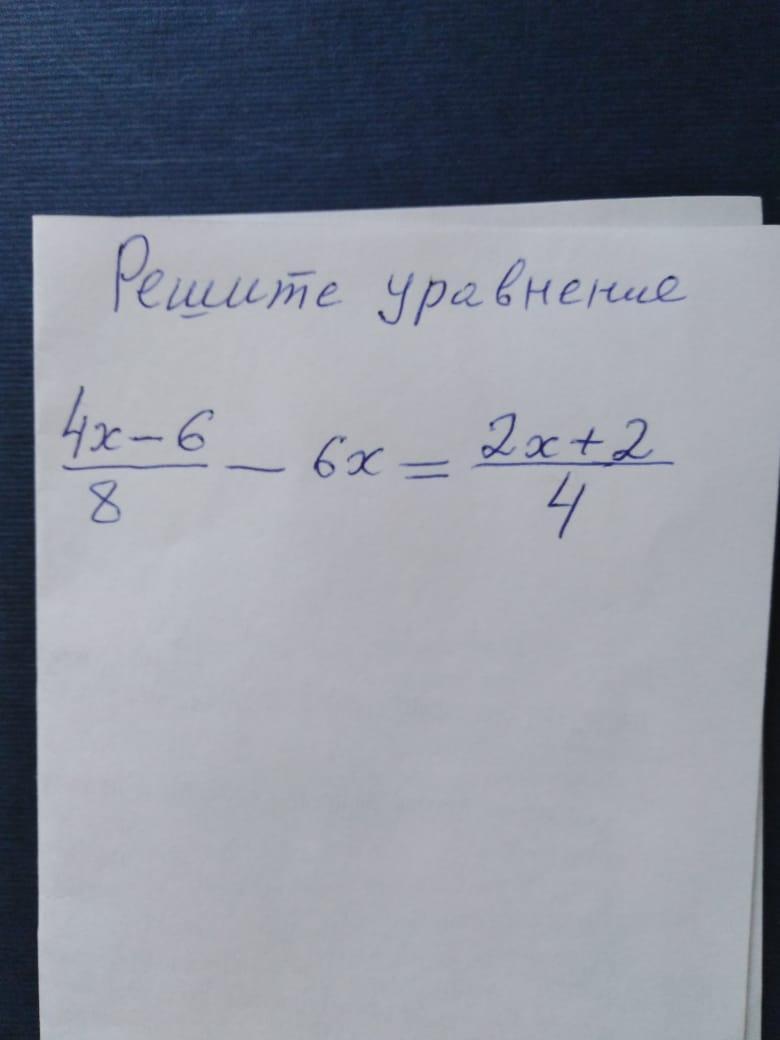 Решите уравнение
4x-6/8 - 6x = 2x+2/4